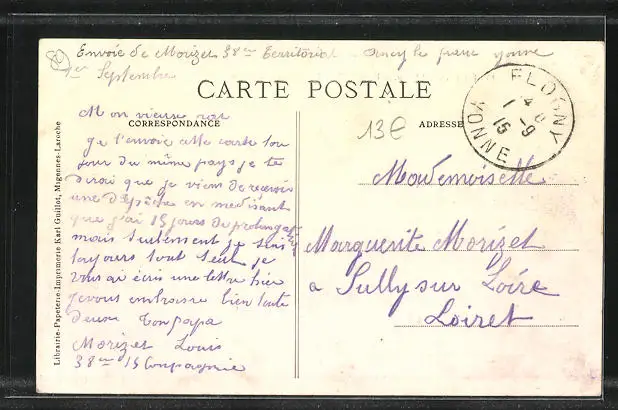 Envoie de Morizet 38em Territorial Ancy le franc yonne
1er Septembre
CARTE POSTALE
CORRESPONDANCE
ADRESSE
FLOGNY
YONNE
1-9
15
13€
Mon vieux rat
ge t'envoie cette carte tou
jour du même pays je te
dirai que je viens de recevoir
une dépêche en me disant
que j'ai 15 jours de prolongation
mais seulement je suis
toujours tout seul je
vous ai écris une lettre hier
je vous embrasse bien toute
deux ton papa
Morizet Louis
38em 15 Compagnie
Mademoiselle
Marguerite Morizet
a Sully sur Loire
Loiret
Librairie-Papeterie-Imprimerie Karl Guillot, Migennes-Laroche